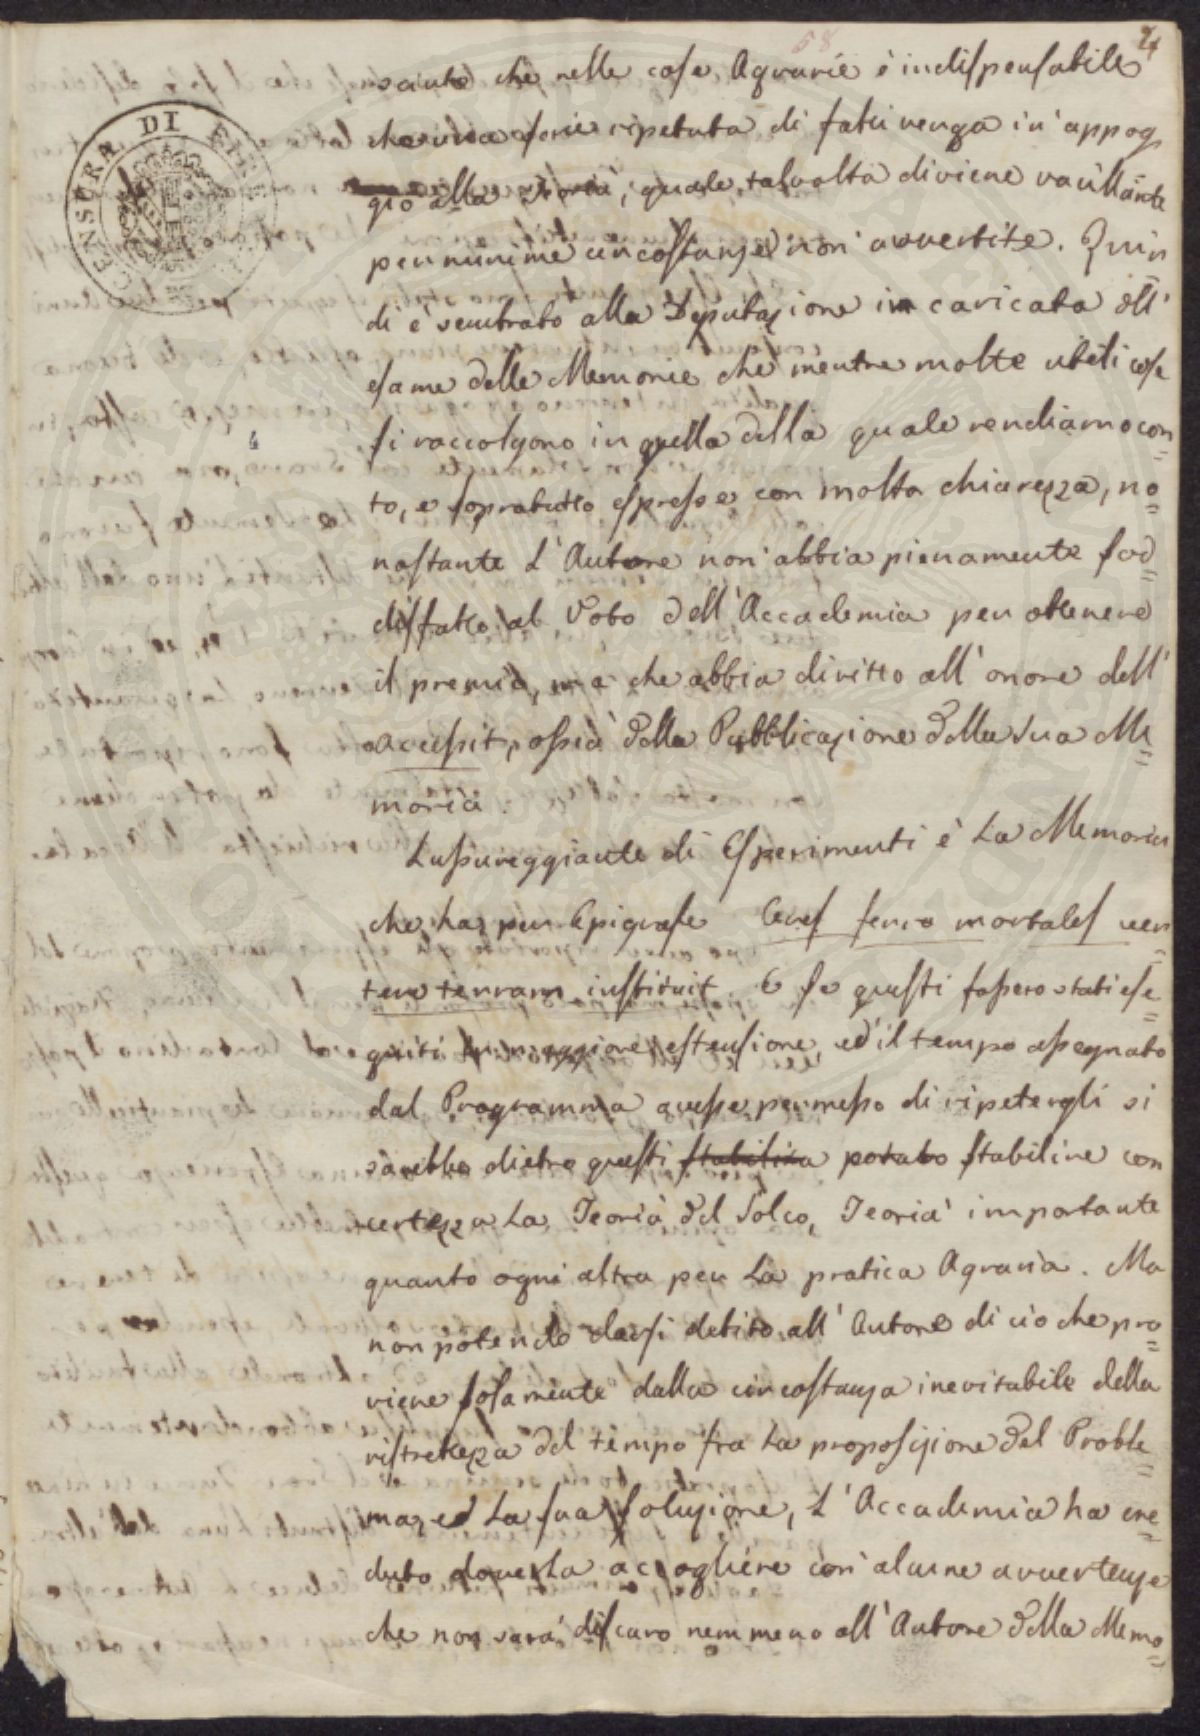 58
24
sante che nelle cose Agrarie è indispensabile
che una serie ripetuta di fatti venga in appog
gio alla Teoria, quale talvolta diviene vacillante
per minime circostanze non avvertite. Quin
di è sembrato alla Deputazione in caricata all'
esame delle Memorie che mentre molte utili cose
si raccolgono in quella della quale rendiamo con
to, e sopratutto espresse con molta chiarezza, no
nostante l'Autore non abbia pienamente sod
disfatto al Voto dell'Accademia per ottenere
il premio, ma che abbia diritto all'onore dell'
accessit, ossia della Pubblicazione della sua Me
moria.
Lussureggiante di Esperimenti è la Memoria
che ha per Epigrafe Ceres ferro mortales ver
tere terram instituit. E se questi fossero stati ese
guiti in maggiore estensione, ed il tempo assegnato
dal Programma avesse permesso di ripetergli si
sarebbe dietro questi stabilita potuto stabilire con
certezza la Teoria del Solco, Teoria importante
quanto ogni altra per la pratica Agraria. Ma
non potendo darsi debito all'Autore di ciò che pro
viene solamente dalla circostanza inevitabile della
ristrettezza del tempo fra la proposizione del Proble
ma, ed la sua soluzione, l'Accademia ha cre
duto doverla accogliere con alcune avvertenze
che non sarà discaro nemmeno all'Autore della Memo
CENSURA DI